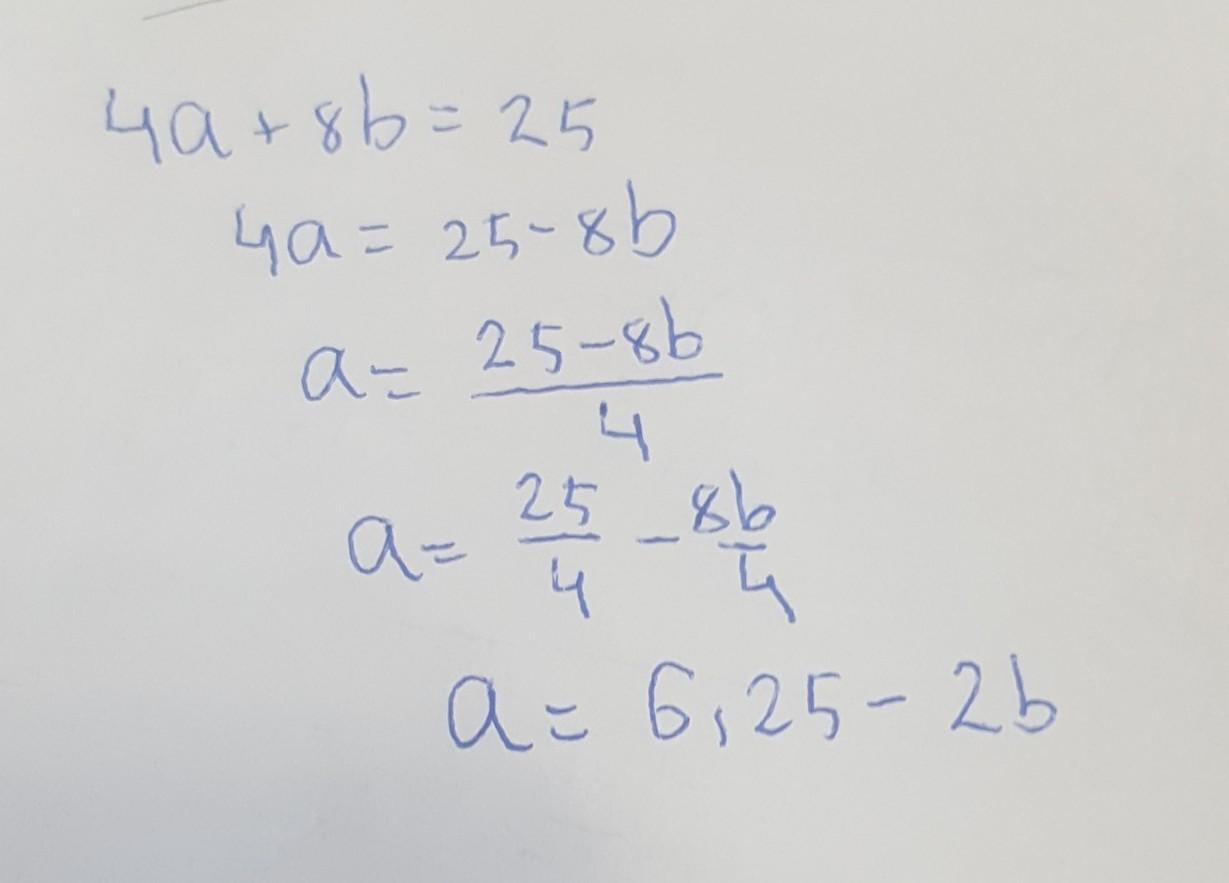 4a + 8b = 25
4a = 25 - 8b
a = \frac{25 - 8b}{4}
a = \frac{25}{4} - \frac{8b}{4}
a = 6,25 - 2b